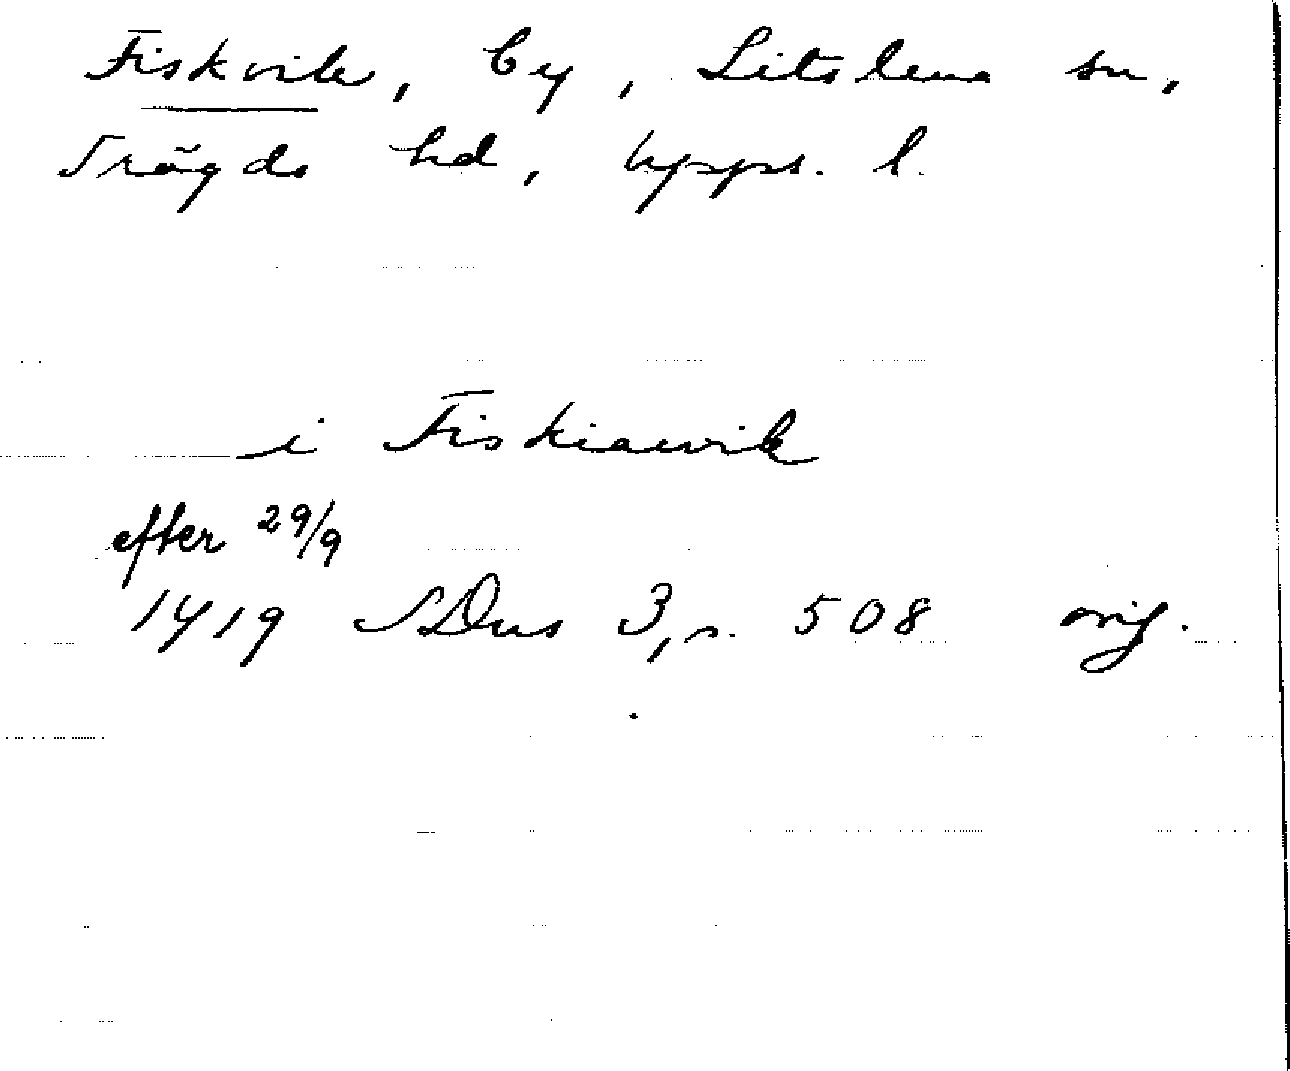 Fiskvik, by, Litslena sn,
Trögds hd, Upps. l.
i Fiskiawik
efter 29/9
1419 SDns 3, s. 508 orig.